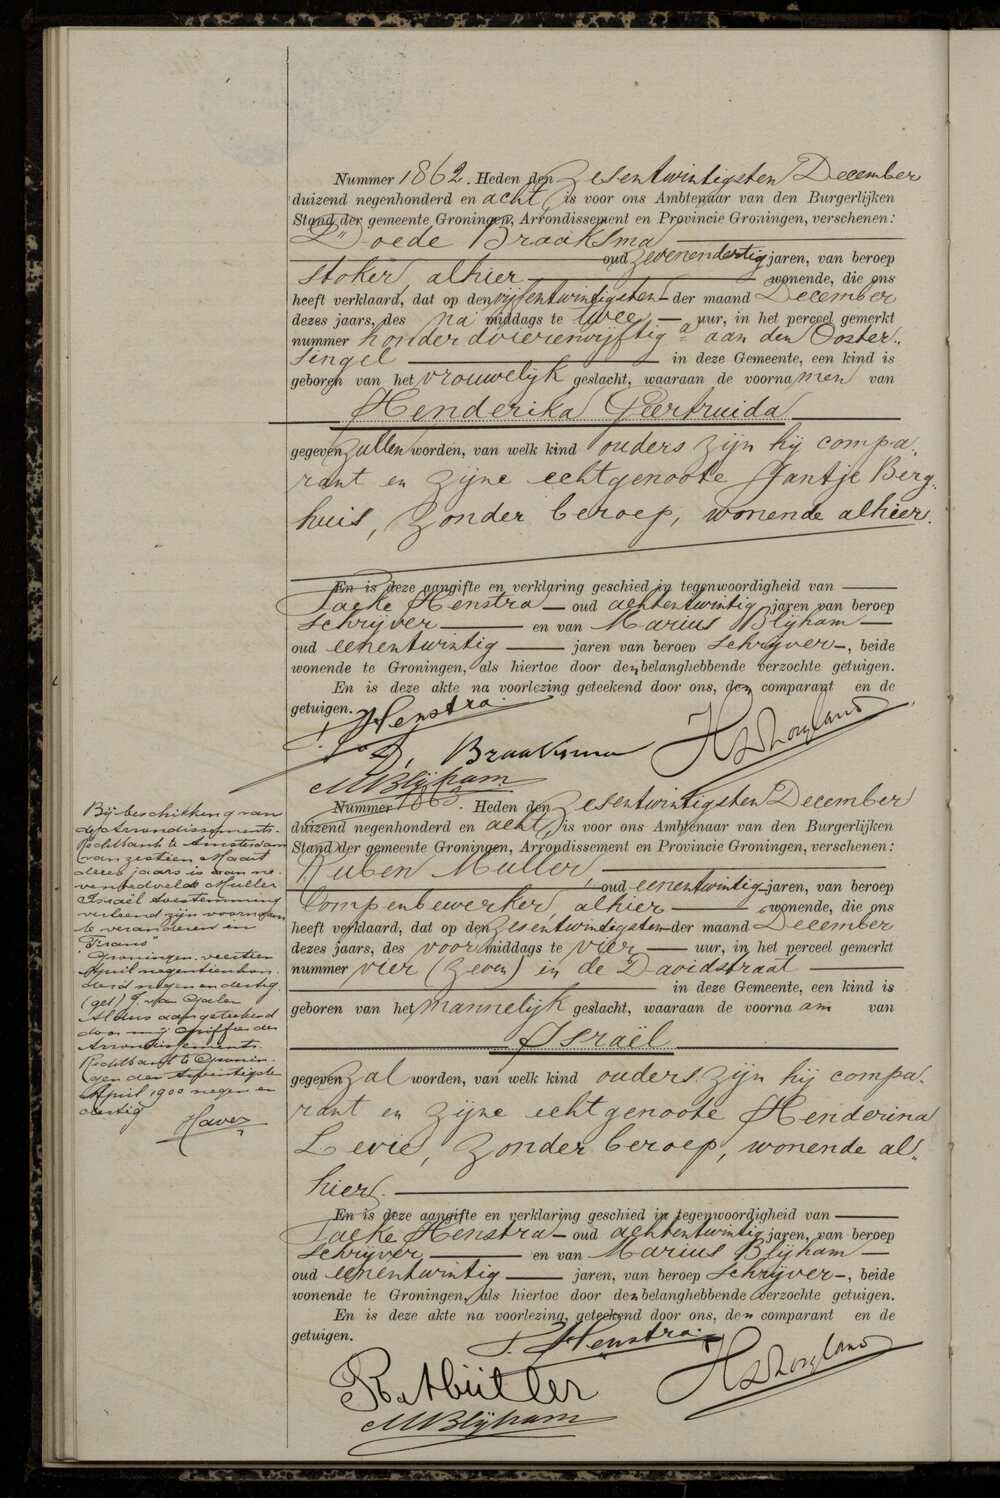 Nummer 1862. Heden den Zesentwintigsten December
duizend negenhonderd en acht, is voor ons Ambtenaar van den Burgerlijken
Stand der gemeente Groningen, Arrondissement en Provincie Groningen, verschenen:
Doede Braaksma
oud zevenendertig jaren, van beroep
stoker, alhier wonende, die ons
heeft verklaard, dat op den vijfentwintigsten der maand December
dezes jaars, des na middags te twee uur, in het perceel gemerkt
nummer honderdvierenvijftig a aan den Ooster„
singel in deze Gemeente, een kind is
geboren van het vrouwelijk geslacht, waaraan de voornamen van
Henderika Geertruida
gegeven zullen worden, van welk kind ouders zijn hij compa„
rant en zijne echtgenoote Jantje Berg„
huis, zonder beroep, wonende alhier.
En is deze aangifte en verklaring geschied in tegenwoordigheid van
Henstra oud achtentwintig jaren van beroep
schrijver en van Marius Blijham
oud eenentwintig jaren van beroep schrijver, beide
wonende te Groningen, als hiertoe door den belanghebbende verzochte getuigen.
En is deze akte na voorlezing geteekend door ons, den comparant en de
getuigen.
Henstra.
D. Braaksma
MBlijham
Nummer 1863. Heden den Zesentwintigsten December
duizend negenhonderd en acht, is voor ons Ambtenaar van den Burgerlijken
Stand der gemeente Groningen, Arrondissement en Provincie Groningen, verschenen:
Ruben Muller,
oud eenentwintig jaren, van beroep
lompenbewerker, alhier wonende, die ons
heeft verklaard, dat op den zesentwintigsten der maand December
dezes jaars, des voor middags te vier uur, in het perceel gemerkt
nummer vier (zeven) in de Davidstraat
in deze Gemeente, een kind is
geboren van het mannelijk geslacht, waaraan de voornaam van
Israël
gegeven zal worden, van welk kind ouders zijn hij compa„
rant en zijne echtgenoote Henderina
Levie, zonder beroep, wonende al„
hier.
En is deze aangifte en verklaring geschied in tegenwoordigheid van
Henstra oud achtentwintig jaren, van beroep
schrijver en van Marius Blijham
oud eenentwintig jaren, van beroep schrijver, beide
wonende te Groningen, als hiertoe door den belanghebbende verzochte getuigen.
En is deze akte na voorlezing, geteekend door ons, den comparant en de
getuigen.
Henstra.
MBlijham
Bij beschikking van
de Arrondissements-
Rechtbank te Amsterdam
van zestien Maart
dezes jaars is aan ne-
venbedoelde Muller
Israël toestemming
verleend zijn voornaam
te veranderen in
"Frans"
Groningen, veertien
April negentienhon-
derd negen en dertig.
(get)
Aldus aangeteekend
door mij Griffier der
Arrondissements-
Rechtbank te Gronin-
gen den
April 1900 negen en
dertig